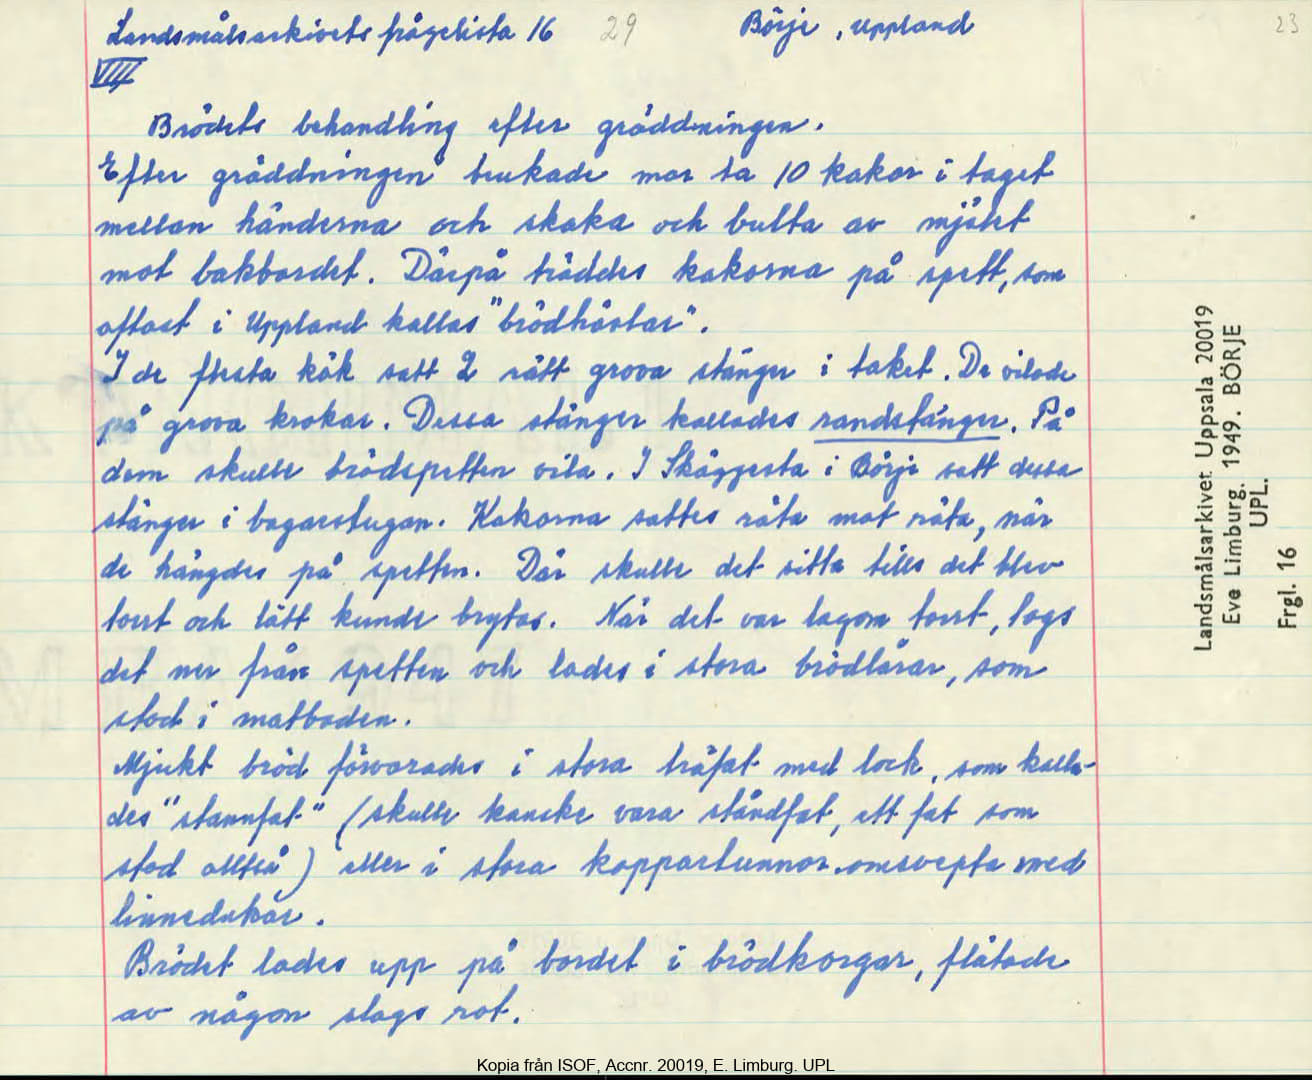 Landsmålsarkivets frågelista 16 29 Börje, Uppland 23
VIII
Brödets behandling efter gräddningen.
Efter gräddningen brukade mor ta 10 kakor i taget
mellan händerna och skaka och bulta av mjölet
mot bakbordet. Därpå träddes kakorna på spett, som
oftast i Uppland kallas "brödhästar".
I de flesta kök satt 2 rätt grova stänger i taket. De vilade
på grova krokar. Dessa stänger kallades randstänger. På
dem skulle brödspetten vila. I Skäggesta i Börje satt dessa
stänger i bagarstugan. Kakorna sattes räta mot räta, när
de hängdes på spetten. Där skulle det sitta tills det blev
torrt och lätt kunde brytas. När det var lagom torrt, togs
det ner från spetten och lades i stora brödlårar, som
stod i matboden.
Mjukt bröd förvarades i stora träfat med lock, som kalla-
des "stannfat" (skulle kanske vara ståndfat, ett fat som
stod alltså) eller i stora koppartunnor omsvepta med
linnedukar.
Brödet lades upp på bordet i brödkorgar, flätade
av någon slags rot.
Landsmålsarkivet Uppsala 20019
Eve Limburg. 1949. BÖRJE
UPL.
Frgl. 16
Kopia från ISOF, Accnr. 20019, E. Limburg. UPL